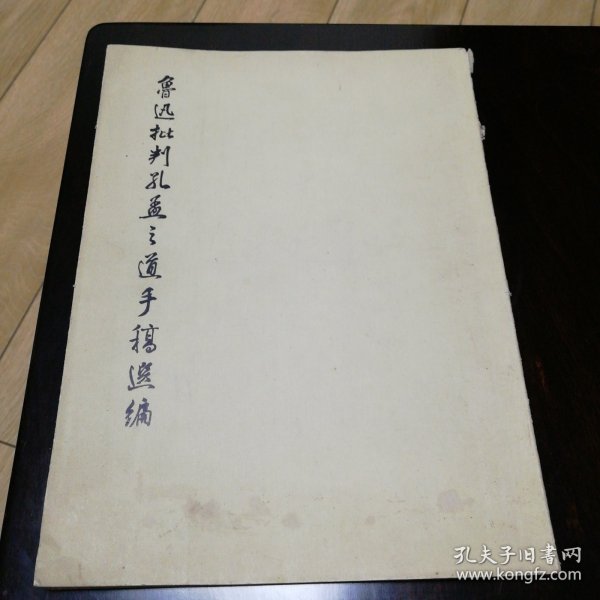 魯迅批判孔孟之道手稿選編
孔夫子旧书网
www.kongfz.com